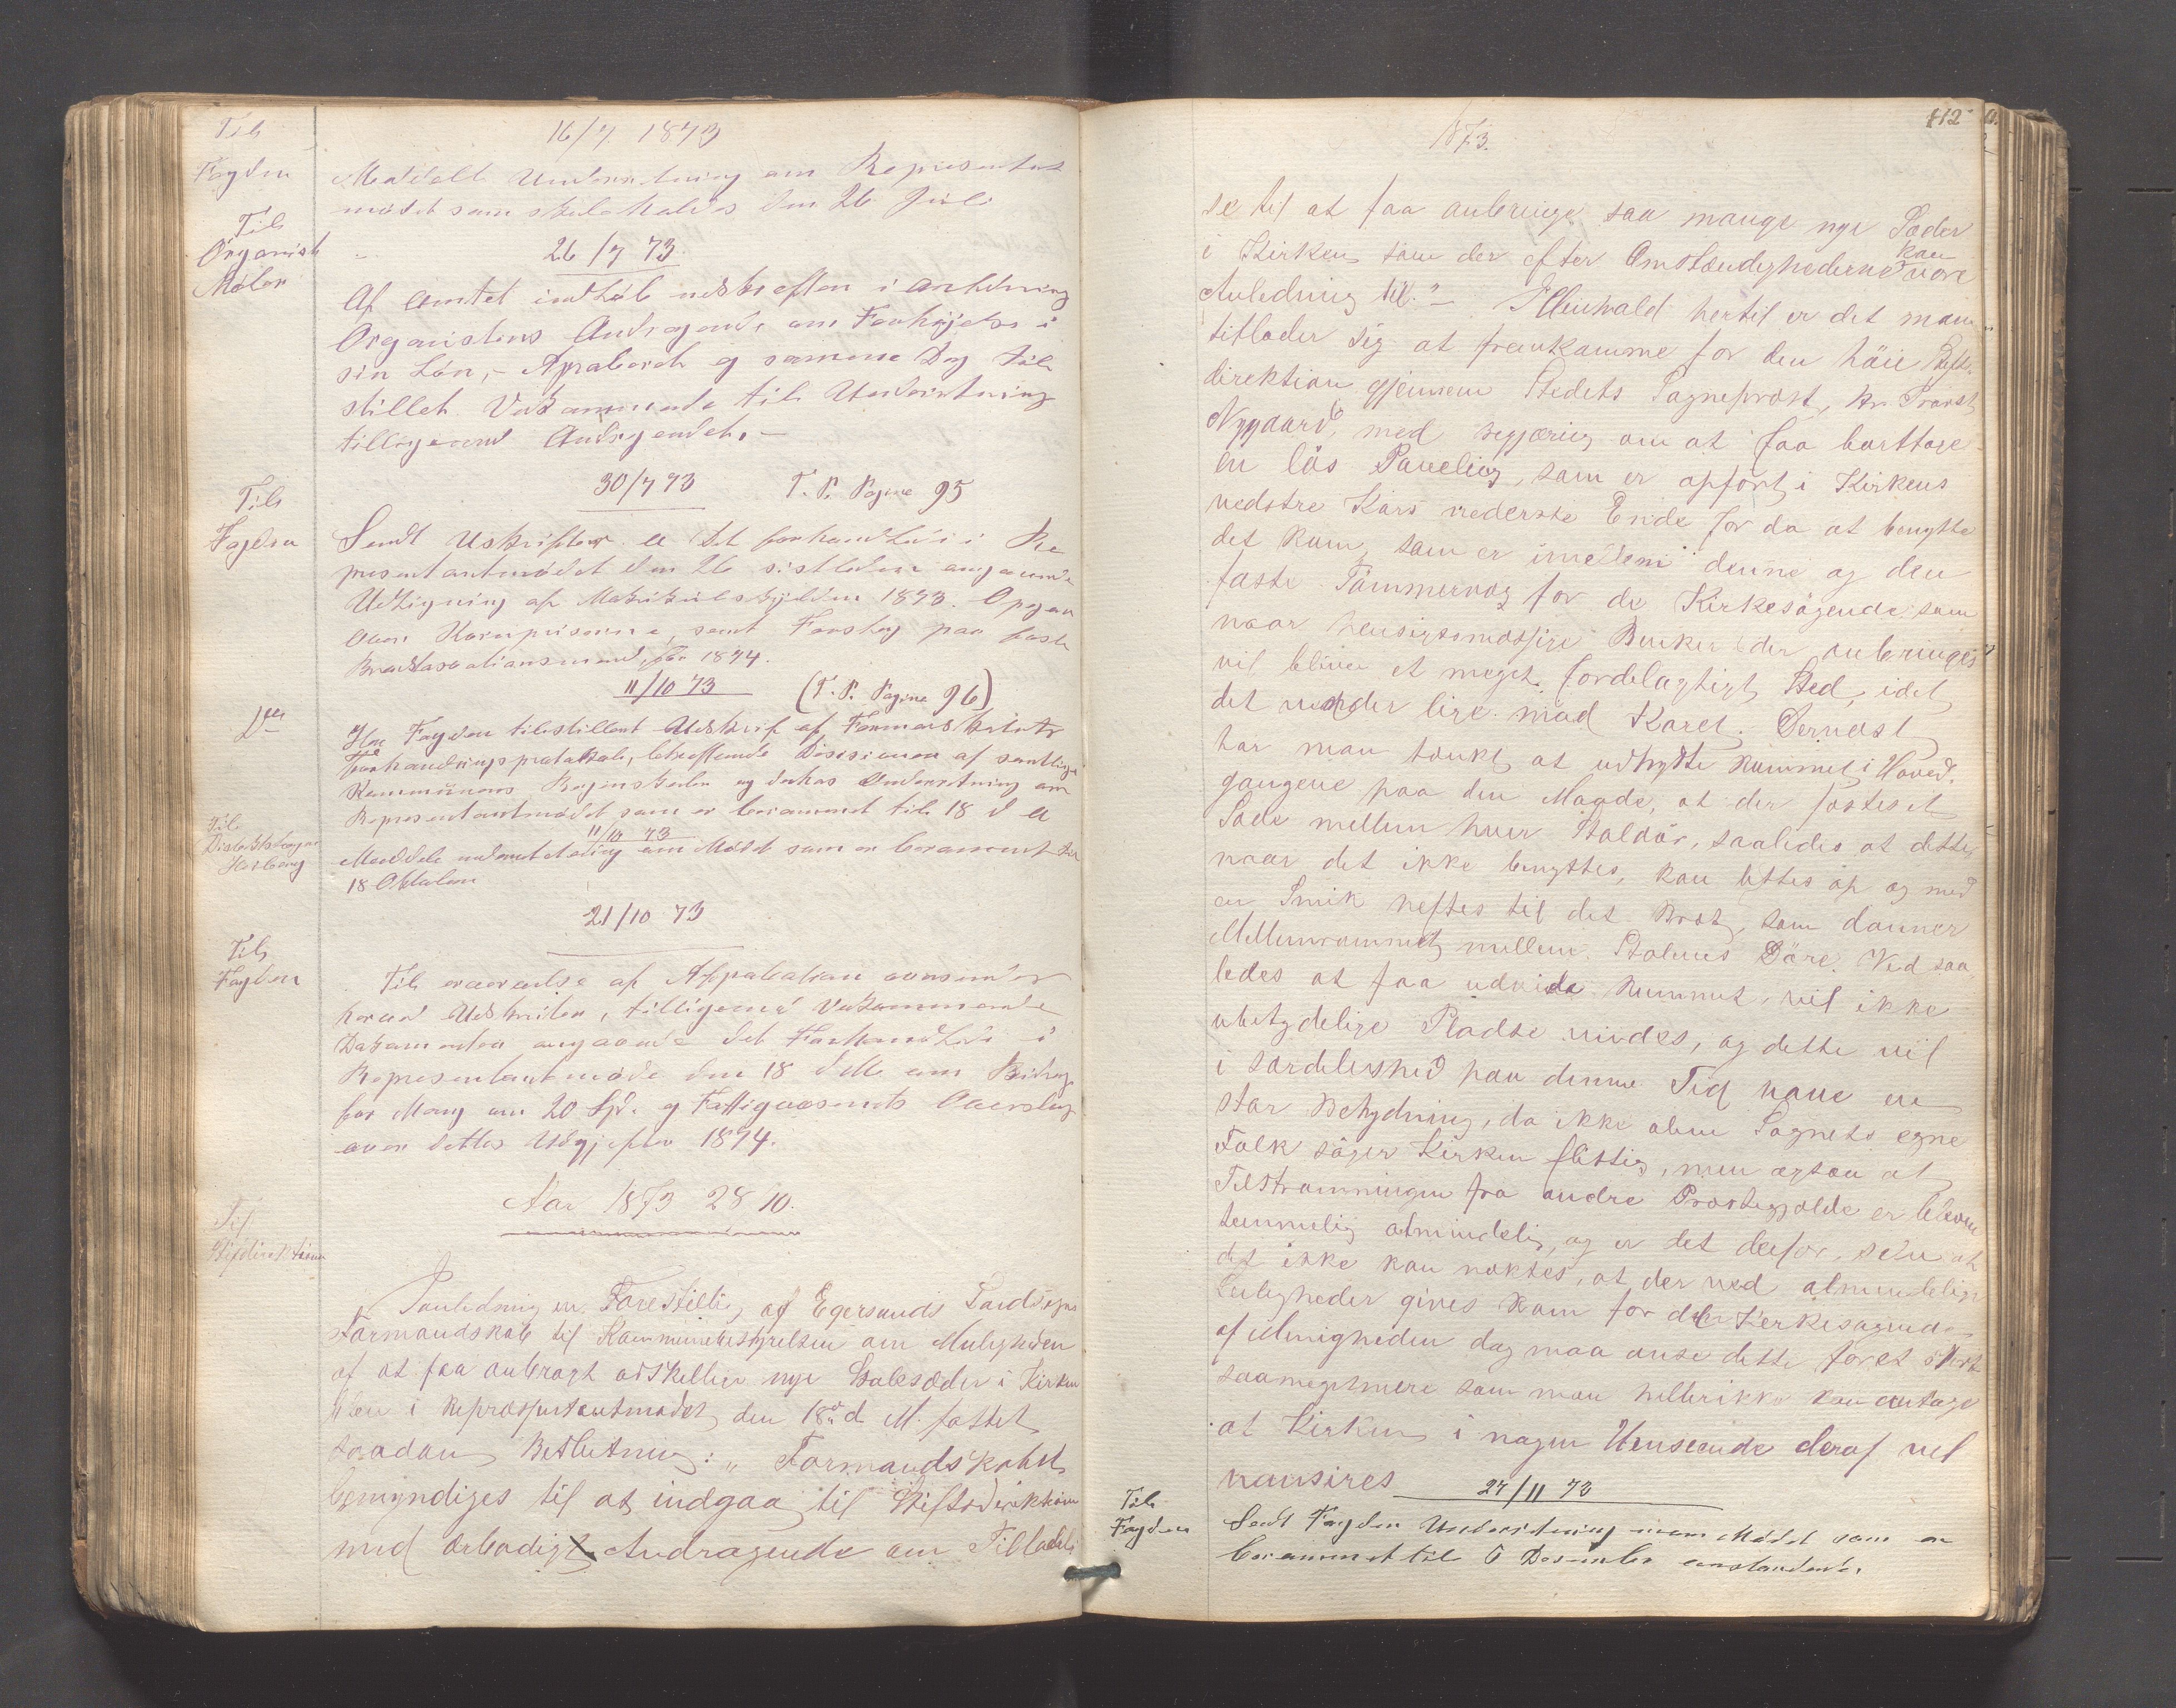 Til
Fogden
16/7. 1873
Meddelt Underretning om Representant
mødet som skal holdes den 26 Juli
Til
Organist
Møler
26/7 73.
Af Amtet indhæb udskriften i Anledning
Organistens Andragende om Forhøjelse i
sin Løn, - Aprobereh og samme Dag til
stillet Vedkommende til Underretning
tilligemed Andragendet. -
Til
Fogden
30/7 73 T. P. Pagina 95
Sendt Uskrifter a det forhandlede i Re
presentantmødet den 26 sistleden angaaende
Udligning af Matrikulskylden 1873. Opgave
over Kornpriserne, samt Forslag paa
Brandtaxationsmænd, for 1874.
Do
11/10 73 (F. P. Pagina 96)
Hr Fogden tilstillent Udskrift af Formandskabets
Forhandlingsprotokol, betreffende Desisionen af samtlige
Kommunens Regnskaber og derhos Underretning om
Representantmødet som er berammet til 18 d M
Til
Distriktslæge
Hesberg
11/10 73
Meddelt underretning om Mødet som er berammet til
18 Oktober
21/10 73
Til
Fogden
Til erværvelse af Appabation oversendes
herved Udskriften, tilligemed Vedkommende
Dokumenter angaaende det Forhandlede i
Representantmøde den 18 d M om Bidrag
for Mary om 20 Spd. og Fattigvæsenets Overslag
over dettes Udgifter 1874.
Aar 1873 28 10.
Til
Stiftsdirektionen
I anledning en Forestilling af Egersunds Landsogns
Formandskab til Kommunebestyrelsen om Muligheden
af at faa anbragt adskillige nye Stolesæder i Kirken
blev i Repræsentantmødet den 18de d. M. fattet
saadan Beslutning: „Formandskabet
bemyndiges til at indgaa til Stiftsdirektionen
med ærbødigt Andragende om Tilladel
1873.
112
se til at faa anbringe saa mange nye Sæder
i Kirken, som der efter Omstændighederne kan være
Anledning til." - I Henhold hertil er det man
tillader sig at fremkomme for den höie Stifts-
direktion gjennem Stedets Sogneprest, Hr. Provst
Nygaard, med begjæring om at faa borttage
en lös Paneling, som er opfört i Kirkens
vedstre Kors nederste Ende for da at benytte
det Rum, som er imellem denne og den
faste Tömmervæg for de Kirkesögende som
naar hensigtsmæssige Bænker der anbringes
vil blive et meget fordelagtigt Sted, idet
det vender lige mod Koret. Dernæst
har man tænkt at udnytte Rummet i Hoved-
gangene paa den Maade, at der fæstes et
Sæde mellem hver Stoldör, saaledes at dette,
naar det ikke benyttes, kan löftes op og med
en Smik heftes til det Bræt, som danner
Mellemrummet mellem Stolenes Döre. Ved saa-
ledes at faa udvide Rummet, vil ikke
ubetydelige Pladse vindes, og dette vil
i særdeleshed paa denne Tid have en
stor Betydning, da ikke alene Sognets egne
Folk söger Kirken flittig, men ogsaa at
Tilströmningen fra andre Præstegjælde er bleven
temmelig almindelig, og er det derfor, selv at
det ikke kan nektes, at der ved almindelige
Leiligheder gives Rum for de Kirkesøgende
af Menigheden dog maa anse dette for et stort
saameget mere som man hellerikke kan antage
at Kirken i nogen Henseende deraf vil
vansires
Til
Fogden
27/11 73
Sendt Fogden Underretning om Mødet som er
berammet til 6 Desember førstkommende.